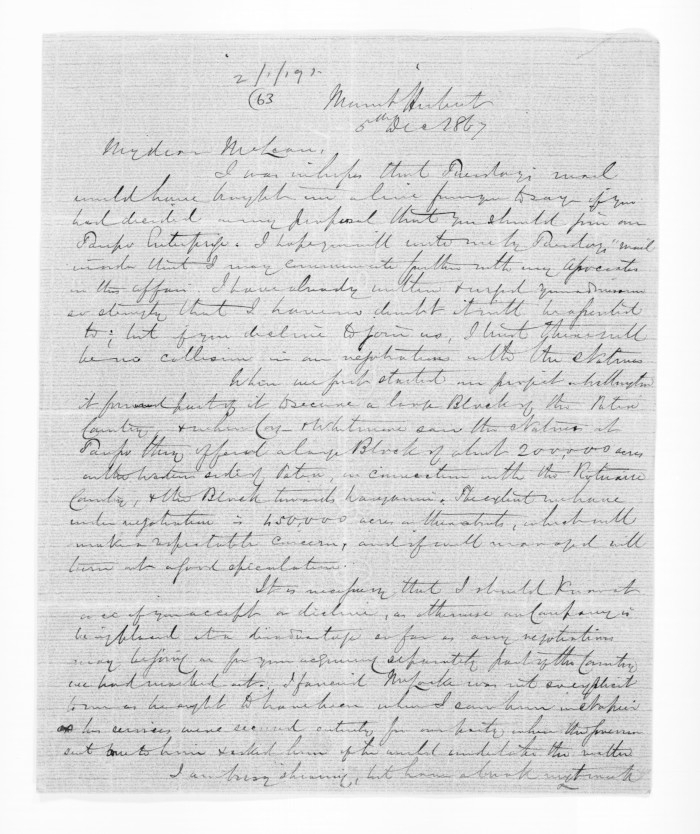 2/1/191.
(63
Mount Herbert
5th Dec 1867
My dear McLean,
I was in hopes that Tuesday's mail
would have brought me a line from you to say if you
had decided on my proposal that you should join our
Taupo Enterprise. I hope you will write me by Tuesdays mail
in order that I may communicate further with my Associates
in this affair. I have already written & urged your admission
so strongly that I have no doubt it will be assented
to; but if you decline to join us, I trust there will
be no collision in our negotiations with the Natives
When we first started our project in Wellington
it formed part of it to secure a large Block of the Patea
Country, & when Cox & Whitmore saw the Natives at
Taupo they offered a large Block of about 200,000 acres
on the western side of Patea, in connection with the
Country, & the Block towards . The extent we have
under negotiation is 450,000 acres or thereabouts, which will
make a respectable concern, and if well managed will
turn out a good speculation.
It is necessary that I should know at
once if you accept or decline, as otherwise our Company is
being placed at a disadvantage so far as any negotiations
may be going on for your acquiring separately part of the Country
we had reached at. I fancied Locke was not so explicit
to me as he ought to have been when I saw him in Napier
as his services were secured entirely for our party when the Governor
sent to him & asked him if he would undertake the matter
I am busy shearing, but have about a week